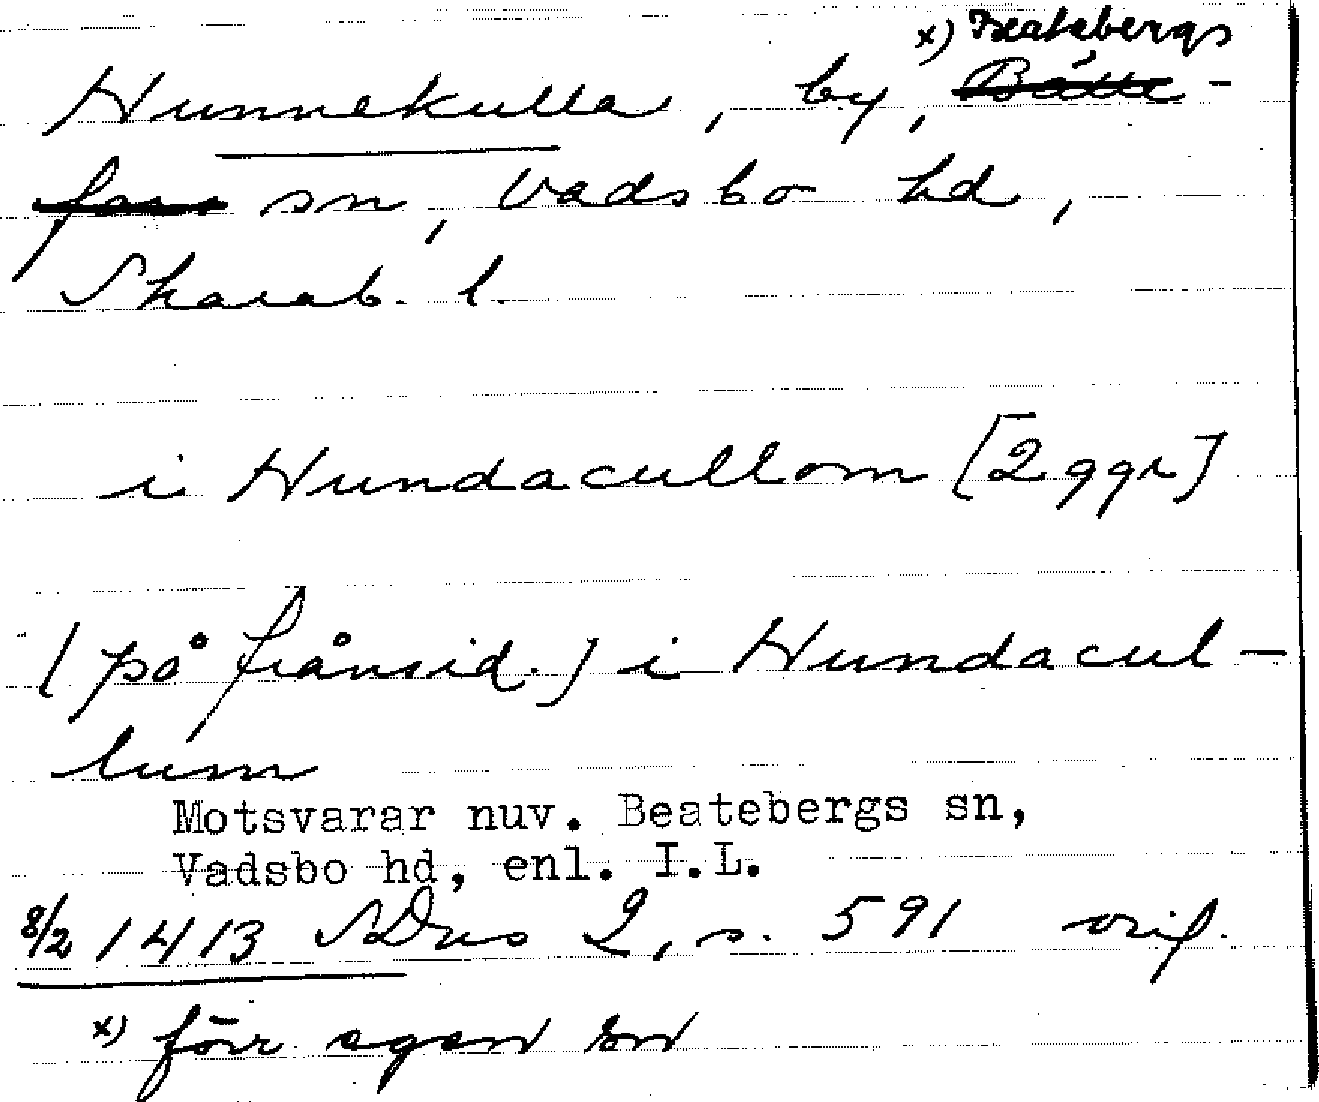 x) Beatebergs
Hunnekulla, by, Bätte-
fors sn, Vadsbo hd,
Skarab. l.
i Hundacullom [2 ggr]
(på frånsid.) i Hundacul-
lum
Motsvarar nuv. Beatebergs sn,
Vadsbo hd, enl. I.L.
8/2 1413 SDns 2, s. 591 orig.
x) förr egen sn